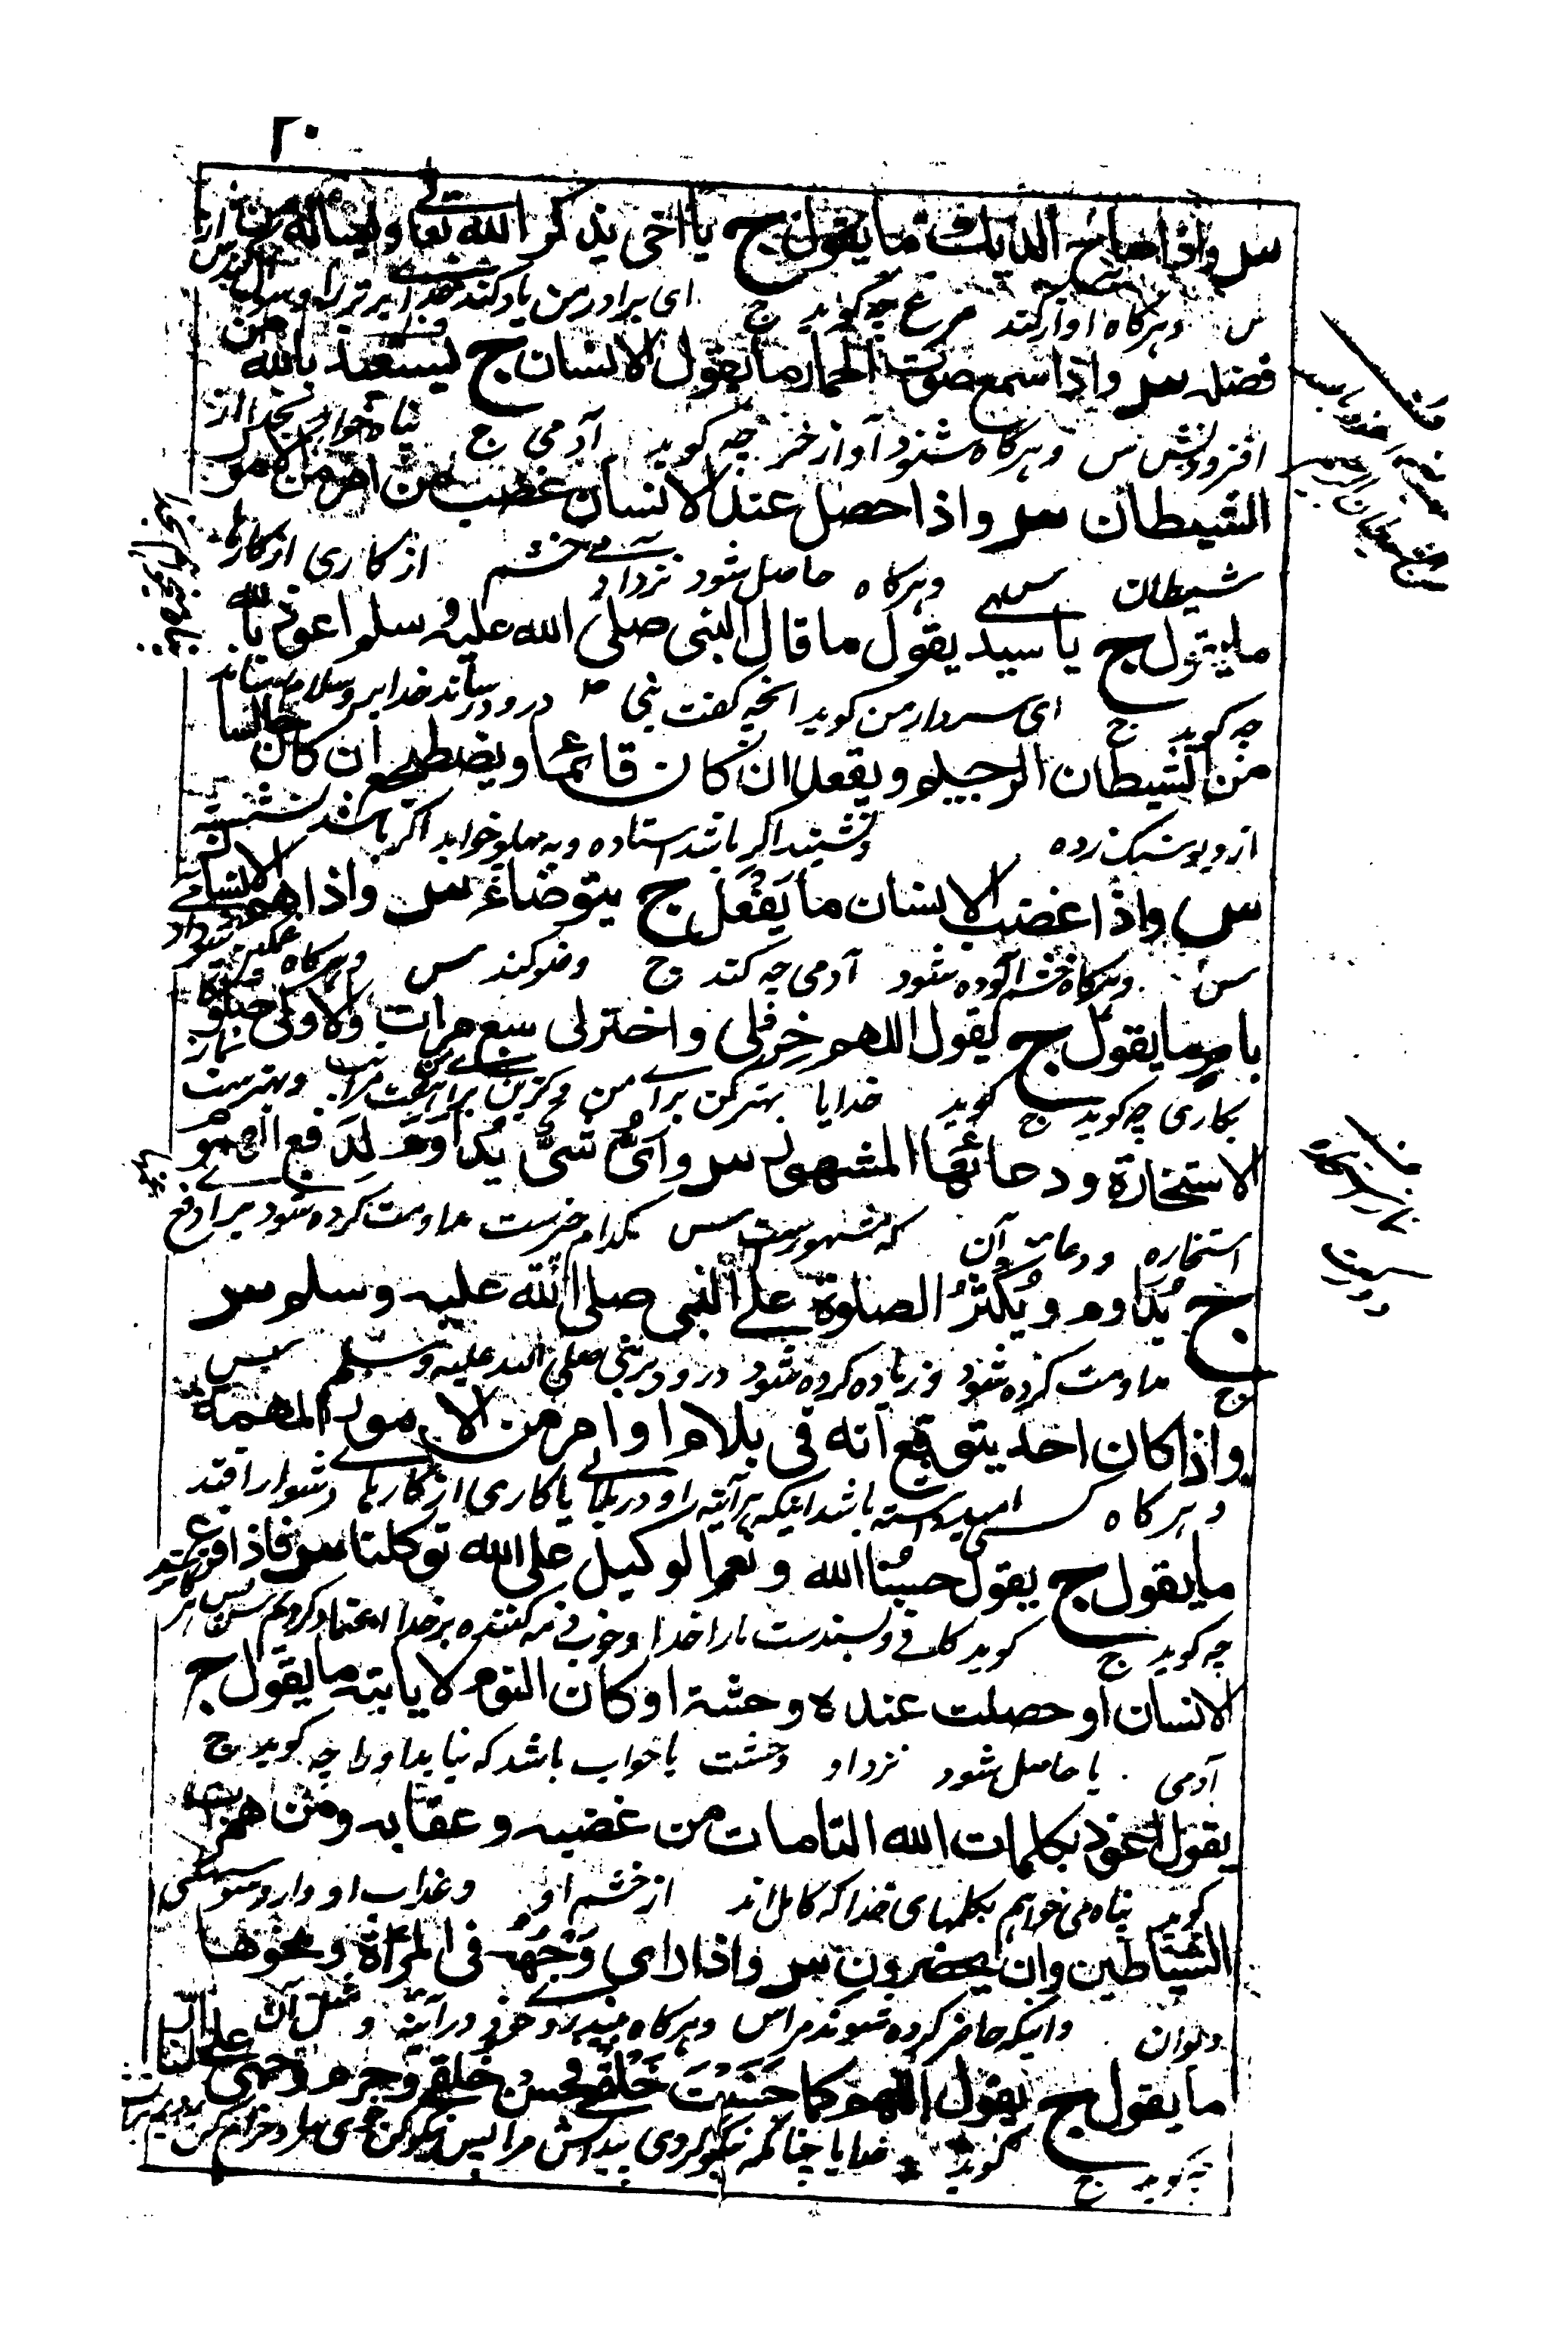 ٢٠
س واذا صاح الديك ما يقول ج يا اخى يذكر الله تعالى ويساله من
س وهرگاه اواز کند مرغ چه گوید ج ای برادر من یاد کند خدا برتر را و سوال کند از
فضله س واذا سمع صوت الحمار ما يقول الانسان ج ليستعيذ بالله من
افزودنش س وهرگاه شنود آواز خر چه گوید آدمی ج پناه خواهد بخدا از
الشيطان س واذا حصل عند الانسان غضب من امر من الامور
شیطان س وهرگاه حاصل شود نزد آدمی خشم از کاری از کارها
ما يقول ج يا سيدى يقول ما قال النبى صلى الله عليه وسلم اعوذ بالله
چه گوید ج ای سردار من گوید انچه گفت نبی درود رساند خدا بر و سلام
من الشيطان الرجيم ويقعد ان كان قائما ويضطجع ان كان جالسا
از دیو سنگ زده و نشیند اگر باشد استاده و به پهلو خوابد اگر باشد نشسته
س واذا غضب الانسان ما يَفْعَل ج يتوضاء س واذا هم الانسان
س وهرگاه خشم آلوده شود آدمی چه کند ج وضو کند س وهرگاه
بامر ما يقول ج يقول اللهم خر لى واختر لى سبع مرات والاولى صلوة
بکاری چه گوید ج گوید خدایا بهتر کن برای من و گزین برای من هفت مراتب و بهترست نماز
الاستخارة ودعائها المشهور س واى شئ يداوم لدفع الهم
استخاره و دعای آن که مشهورست س کدام چیزست مداومت کرده شود برای دفع
ج يُداوم ويُكثرُ الصلوة على النبى صلى الله عليه وسلم س
ج مداومت کرده شود و زیاده کرده شود درود بر نبی صلی الله علیه وسلم س
واذا كان احد يتوقع انه فى بلاء او امر من الامور المهمة
وهرگاه کسی امید داشته باشد اینکه هر آینه او در بلا یا کاری از کارها دشوار افتد
ما يقول ج يقول حسبنا الله ونعم الوكيل على الله توكلنا س فاذا فزع
چه گوید ج گوید کافی و بسندست ما را خدا و خوب ذمه کننده بر خدا اعتماد کردیم س پس هر
الانسان او حصلت عنده وحشة او كان النوم لا ياتيه ما يقول ج
آدمی یا حاصل شود نزد او وحشت یا خواب باشد که نیاید او را چه گوید ج
يقول اعوذ بكلمات الله التامات من غضبه وعقابه ومن همزات
گوید پناه می خواهم بکلمهای خدا که کامل اند از خشم او و عذاب او و از وسوسهای
الشياطين وان يحضرون س واذا راى وَجْهَه فى المرآة ونحوها
دیوان و اینکه حاضر کرده شوند مرا س وهرگاه بیند رو خود در آئینه و مثل آن
ما يقول ج يقول اللهم كما حَسَّنْتَ خَلْقى فحسن خلقى وحرم وجهى على النار
چه گوید ج گوید خدایا چنانکه نیکو کردی پیدایش مرا پس نیکو کن خوی مرا و حرام کن